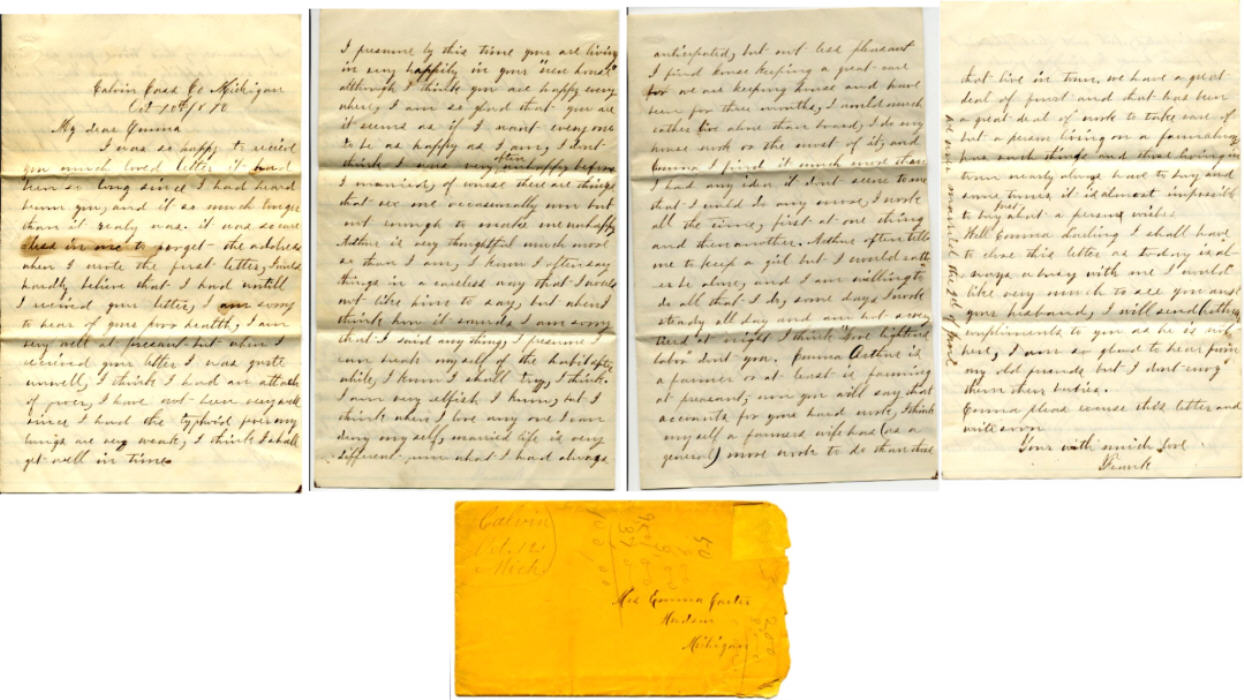 Calvin Cass Co Michigan
Oct 10th/1870
My dear Emma
I was so happy to receive
you much loved letter it had
been so long since I had heard
from you, and it so much longer
than it realy was. it was so care
less in me to forget the address
when I wrote the first letter, I could
hardly believe that I had untill
I received your letter, I am sorry
to hear of your poor health, I am
very well at present but when I
received your letter I was quite
unwell, I think I had an attack
of fever, I have not been very well
since I had the typhoid fever my
lungs are very weak, I think I shall
get well in time
I presume by this time your are living
in very happily in your "new house"
although I think you are happy every
where, I am so glad that you are
it seems as if I want everyone
to be as happy as I am, I dont
think I was very often unhappy before
I married, of course there are things
that vex one occasionally now but
not enough to make me unhappy
Arthur is very thoughtful much more
so than I am, I know I often say
things in a careless way that I would
not like him to say, but when I
think how it sounds I am sorry
that I said any thing, I presume I
can break myself of the habit after
while, I know I shall try, I think
I am very selfish I know, but I
think when I love any one I can
deny my self, married life is very
different from what I had always
anticipated, but not less pleasant
I find house keeping a great care
for we are keeping house and have
been for three months, I would much
rather live alone than board, I do my
house work or the most of it, and
Emma I find it much more than
I had any idea it dont seem to me
that I could do any more, I work
all the time, first at one thing
and then another. Arthur often tells
me to keep a girl but I would rath
er be alone, and I am willing to
do all that I do, some days I work
steady all day and am not a very
tired at night I think "love lightens
labor" dont you. Emma Arthur is
a farmer or at least is farming
at pleasant, now you will say that
accounts for your hard work, I think
myself a farmers wife has (as a
general) more work to do than those
that live in town. we have a great
deal of fruit and that has been
a great deal of work to take care of
but a person living on a farm always
has such things and those living in
town nearly always have to buy and
some times it is almost impossible
to buy just what a person wishes
Well Emma darling I shall have
to close this letter as to day is al
ways a busy with me I would
like very much to see you and
your husband, I will send Arthurs
compliments to you as he is not
here, I am so glad to hear from
my old friends but I dont enjoy
them their babies.
Emma please excuse this letter and
write soon
Your with much love
Frank
we were married the 3d of June
Calvin
Oct. 12
Mich.
Mrs Emma Carter
Hudson
Michigan